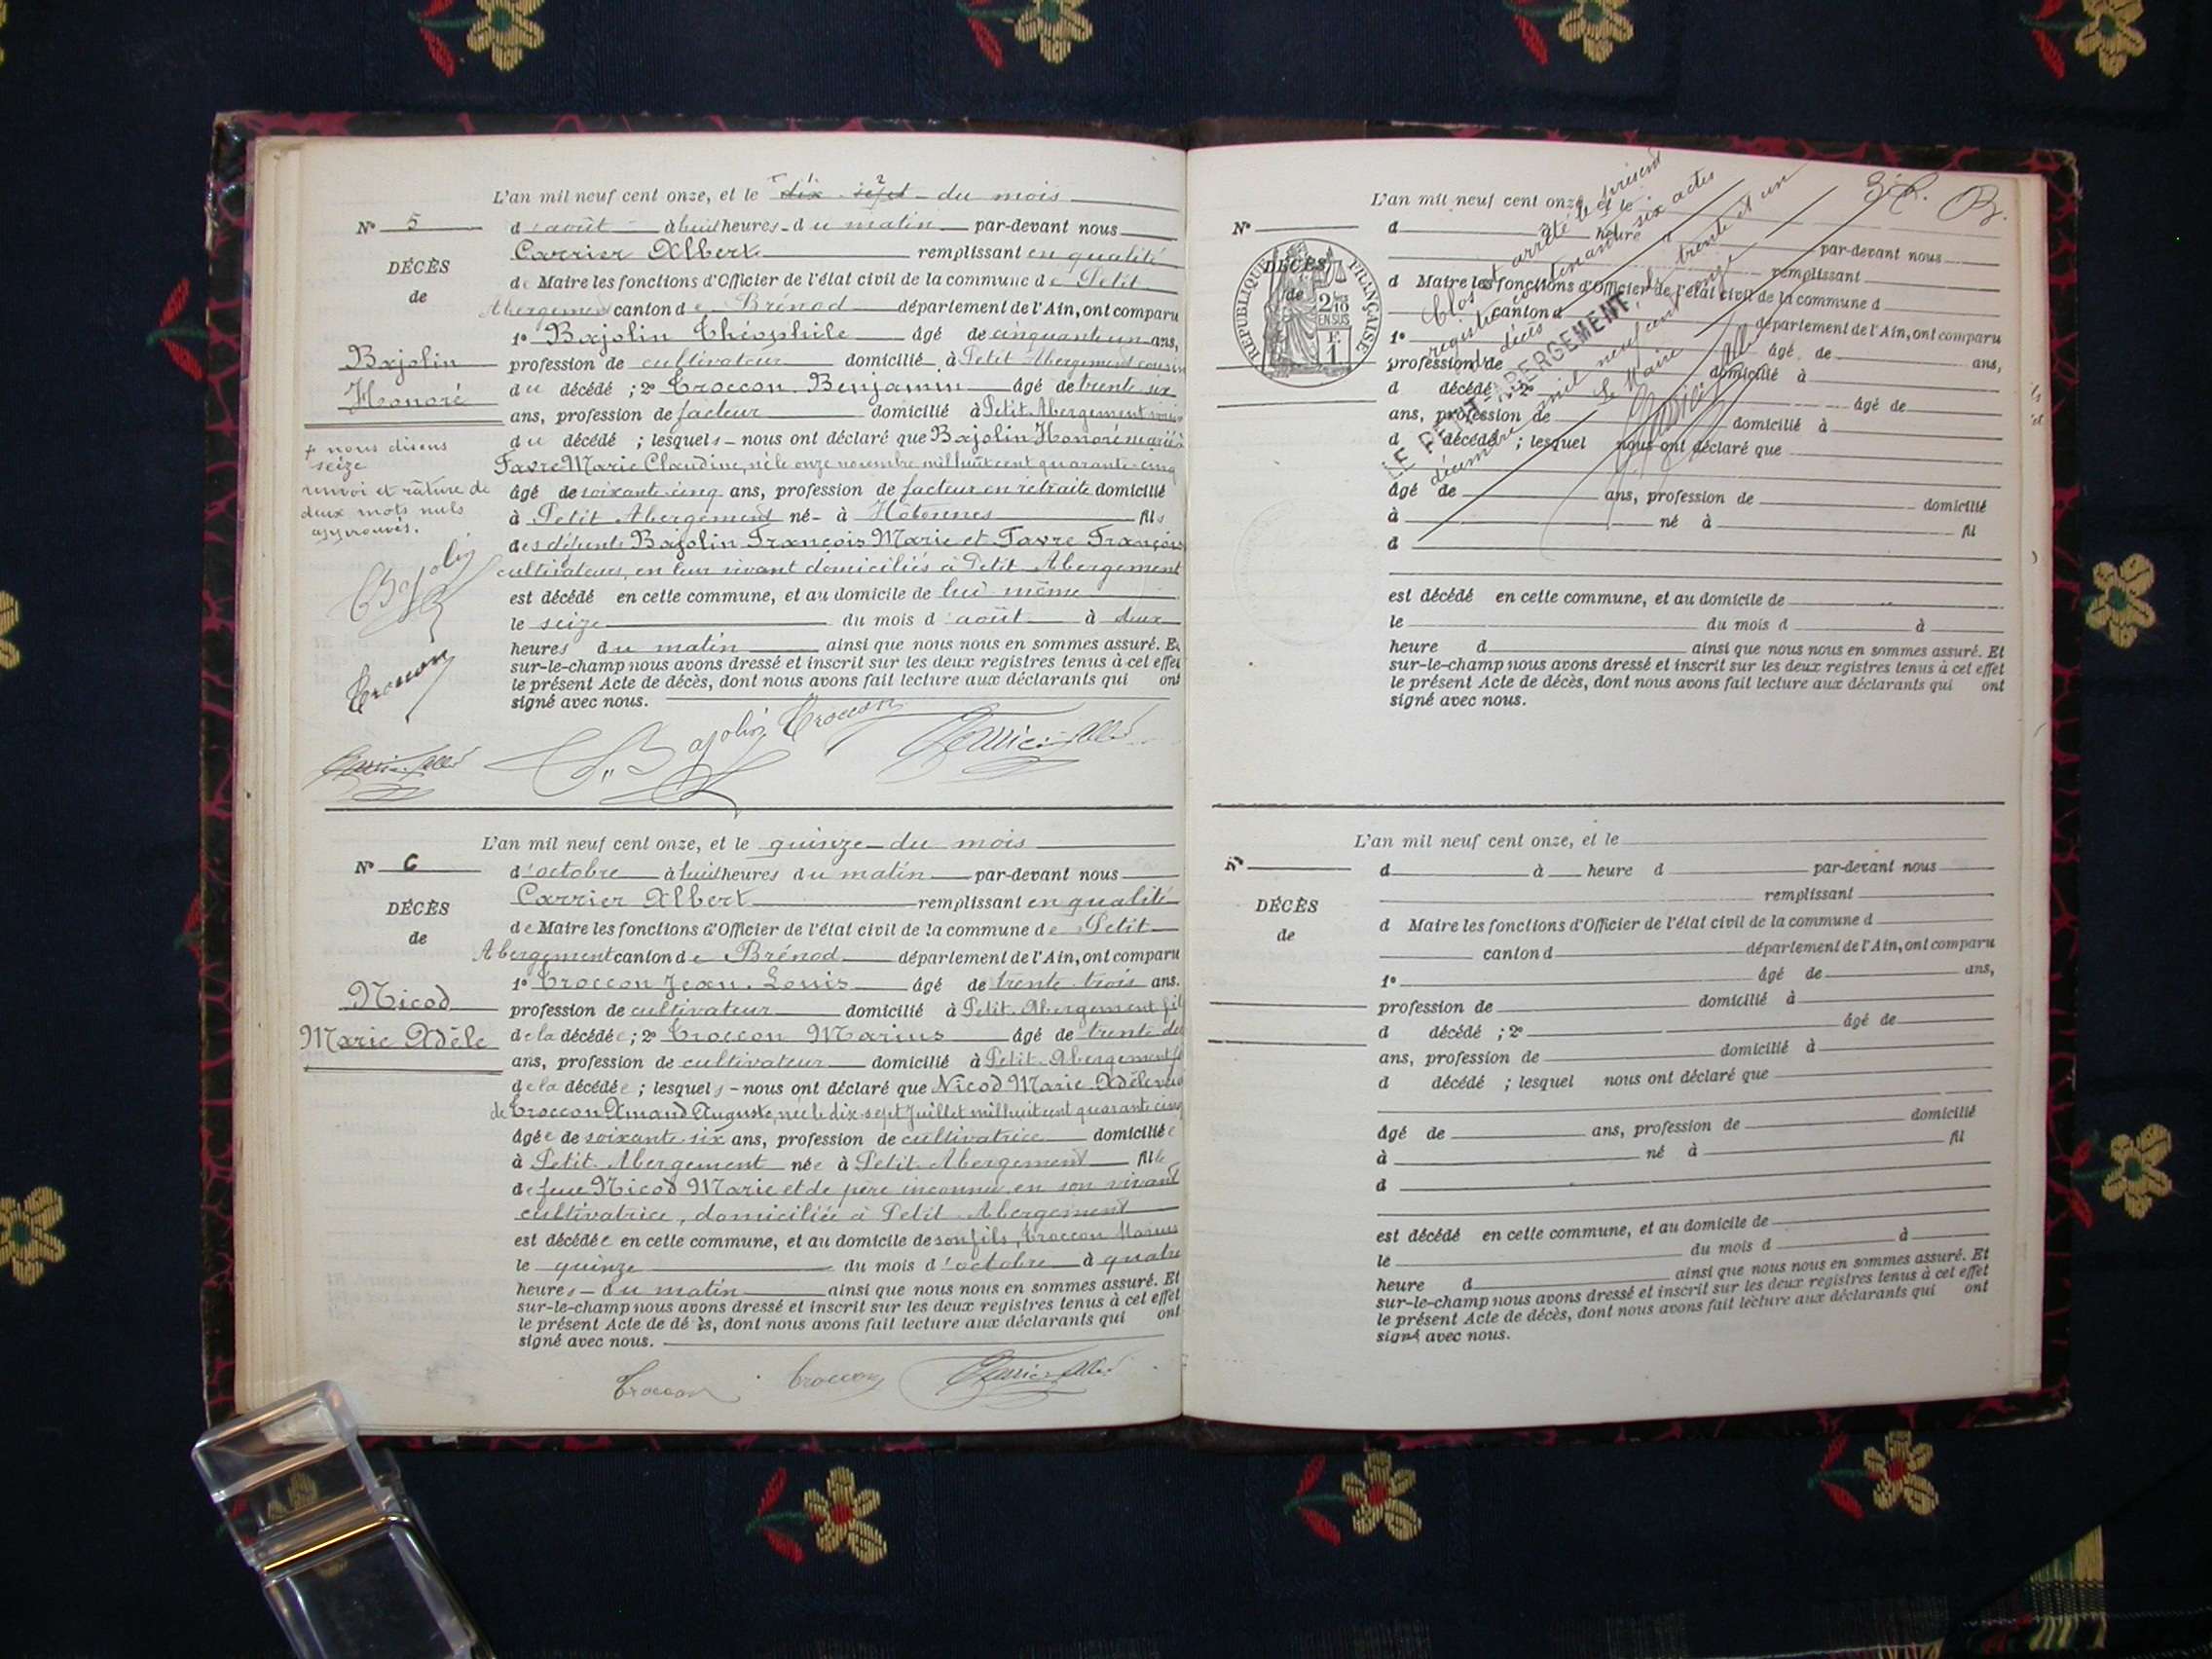 L'an mil neuf cent onze, et le dix sept du mois
N° 5
d'août à huit heures du matin par-devant nous
Carrier Albert remplissant en qualité
DÉCÈS
de
de Maire les fonctions d'Officier de l'état civil de la commune de Petit
Abergement canton de Brénod département de l'Ain, ont comparu
1° Bajolin Théophile âgé de cinquante un ans,
Bajolin
Honoré
profession de cultivateur domicilié à Petit Abergement cousin
du décédé ; 2° Troccon Benjamin âgé de trente six
ans, profession de facteur domicilié à Petit Abergement voisin
du décédé ; lesquels nous ont déclaré que Bajolin Honoré marié à
Favre Marie Claudine, né le onze novembre mil huit cent quarante cinq
âgé de soixante-cinq ans, profession de facteur en retraite domicilié
à Petit Abergement né à Hotonnes fils
des défunts Bajolin François Marie et Favre Françoise
cultivateurs, en leur vivant domiciliés à Petit Abergement
est décédé en cette commune, et au domicile de lui même
le seize du mois d'août à deux
heures du matin ainsi que nous nous en sommes assuré. Et
sur-le-champ nous avons dressé et inscrit sur les deux registres tenus à cet effet
le présent Acte de décès, dont nous avons fait lecture aux déclarants qui ont
signé avec nous.
+ nous disons
seize
renvoi et râture de
deux mots nuls
approuvés.
Bajolin
Troccon
Carrier Albert
Bajolin Troccon Carrier Albert
L'an mil neuf cent onze, et le quinze du mois
N° 6
d'octobre à huit heures du matin par-devant nous
Carrier Albert remplissant en qualité
DÉCÈS
de
de Maire les fonctions d'Officier de l'état civil de la commune de Petit
Abergement canton de Brénod département de l'Ain, ont comparu
1° Troccon Jean Louis âgé de trente trois ans.
Nicod
Marie Adèle
profession de cultivateur domicilié à Petit Abergement fils
de la décédée ; 2° Troccon Marius âgé de trente
ans, profession de cultivateur domicilié à Petit Abergement
de la décédée ; lesquels nous ont déclaré que Nicod Marie Adèle
de Troccon Amand Auguste, née le dix sept Juillet mil huit cent quarante cinq
âgée de soixante six ans, profession de cultivatrice domiciliée
à Petit Abergement née à Petit Abergement fille
de feue Nicod Marie et de père inconnu en son vivant
cultivatrice, domiciliée à Petit Abergement
est décédée en cette commune, et au domicile de son fils, Troccon Marius
le quinze du mois d'octobre à quatre
heures du matin ainsi que nous nous en sommes assuré. Et
sur-le-champ nous avons dressé et inscrit sur les deux registres tenus à cet effet
le présent Acte de dé ès, dont nous avons fait lecture aux déclarants qui ont
signé avec nous.
Troccon Troccon Carrier Albert
L'an mil neuf cent onze, et le
N°
d heure par-devant nous
remplissant
DÉCÈS
de
RÉPUBLIQUE FRANÇAISE
EN SUS
d Maire les fonctions d'Officier de l'état civil de la commune d
canton d département de l'Ain, ont comparu
1° âgé de ans,
profession de domicilié à
d décédé ; 2° âgé de
ans, profession de domicilié à
d décédé ; lesquel nous ont déclaré que
âgé de ans, profession de domicilié
à né à fil
d
est décédé en cette commune, et au domicile de
le du mois d à
heure d ainsi que nous nous en sommes assuré. Et
sur-le-champ nous avons dressé et inscrit sur les deux registres tenus à cet effet
le présent Acte de décès, dont nous avons fait lecture aux déclarants qui ont
signé avec nous.
Clos et arrêté le présent
registre contenant six actes
de décès le trente et un
décembre mil neuf cent onze
Le Maire
LE PETIT-ABERGEMENT
L'an mil neuf cent onze, et le
N°
d à heure d par-devant nous
remplissant
DÉCÈS
de
d Maire les fonctions d'Officier de l'état civil de la commune d
canton d département de l'Ain, ont comparu
1° âgé de ans,
profession de domicilié à
d décédé ; 2° âgé de
ans, profession de domicilié à
d décédé ; lesquel nous ont déclaré que
âgé de ans, profession de domicilié
à né à fil
d
est décédé en cette commune, et au domicile de
le du mois d à
heure d ainsi que nous nous en sommes assuré. Et
sur-le-champ nous avons dressé et inscrit sur les deux registres tenus à cet effet
le présent Acte de décès, dont nous avons fait lecture aux déclarants qui ont
signé avec nous.